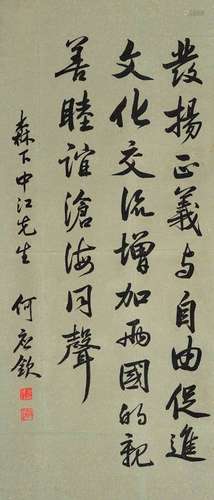 發揚正義与自由促進
文化交流增加兩國的親
善睦誼滄海同聲
森下中江先生
何应欽